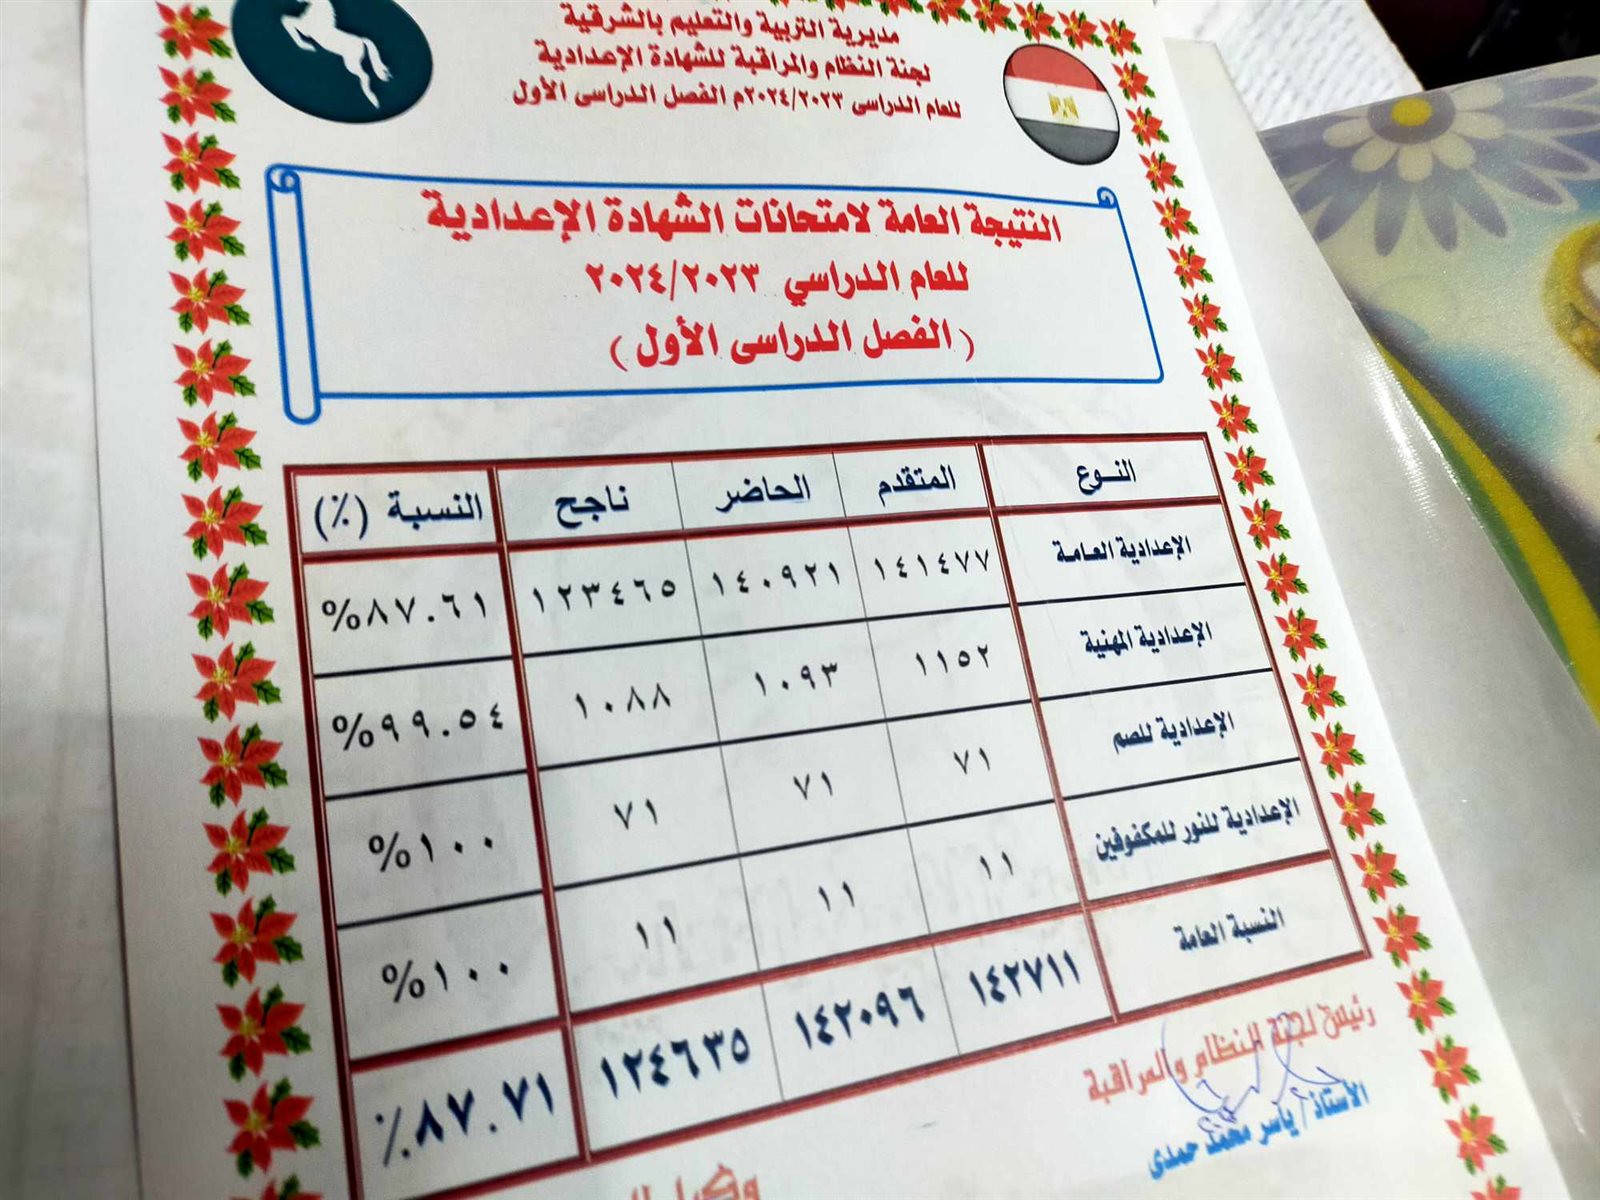 مديرية التربية والتعليم بالشرقية
لجنة النظام والمراقبة للشهادة الإعدادية
للعام الدراسى ٢٠٢٤/٢٠٢٣م الفصل الدراسى الأول
النتيجة العامة لامتحانات الشهادة الإعدادية
للعام الدراسي ٢٠٢٤/٢٠٢٣
( الفصل الدراسى الأول )
النــوع المتقدم الحاضر ناجح النسبة (٪)
الإعدادية العامة ١٤١٤٧٧ ١٤٠٩٢١ ١٢٣٤٦٥ ٨٧.٦١%
الإعدادية المهنية ١١٥٢ ١٠٩٣ ١٠٨٨ ٩٩.٥٤%
الإعدادية للصم ٧١ ٧١ ٧١ ١٠٠%
الإعدادية للنور للمكفوفين ١١ ١١ ١١ ١٠٠%
النسبة العامة ١٤٢٧١١ ١٤٢٠٩٦ ١٢٤٦٣٥ ٨٧.٧١٪
رئيس لجنة النظام والمراقبة
الأستاذ/ ياسر محمد حمدى